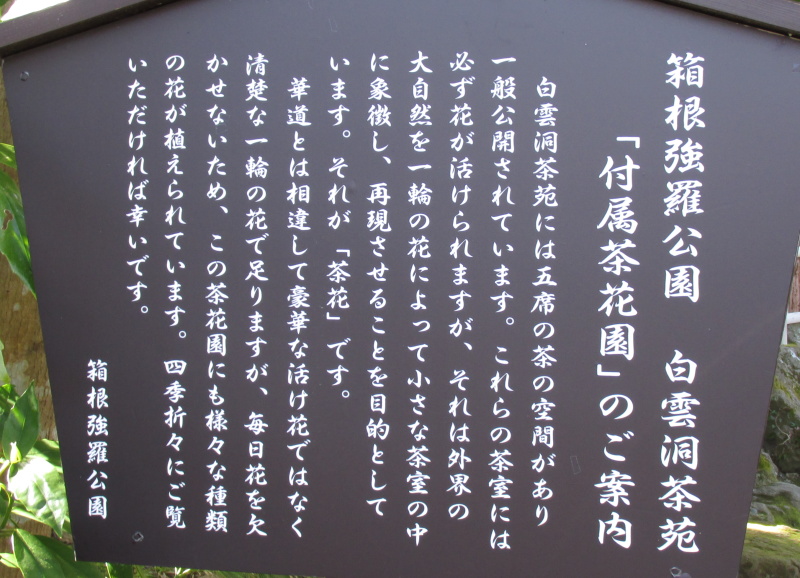 箱根強羅公園　白雲洞茶苑
「付属茶花園」のご案内
白雲洞茶苑には五席の茶の空間があり
一般公開されています。これらの茶室には
必ず花が活けられますが、それは外界の
大自然を一輪の花によって小さな茶室の中
に象徴し、再現させることを目的として
います。それが「茶花」です。
華道とは相違して豪華な活け花ではなく
清楚な一輪の花で足りますが、毎日花を欠
かせないため、この茶花園にも様々な種類
の花が植えられています。四季折々にご覧
いただければ幸いです。
箱根強羅公園